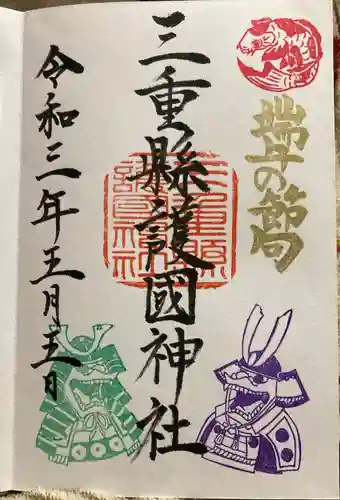 端午の節句
三重縣護國神社
令和三年五月五日
三重縣護國神社